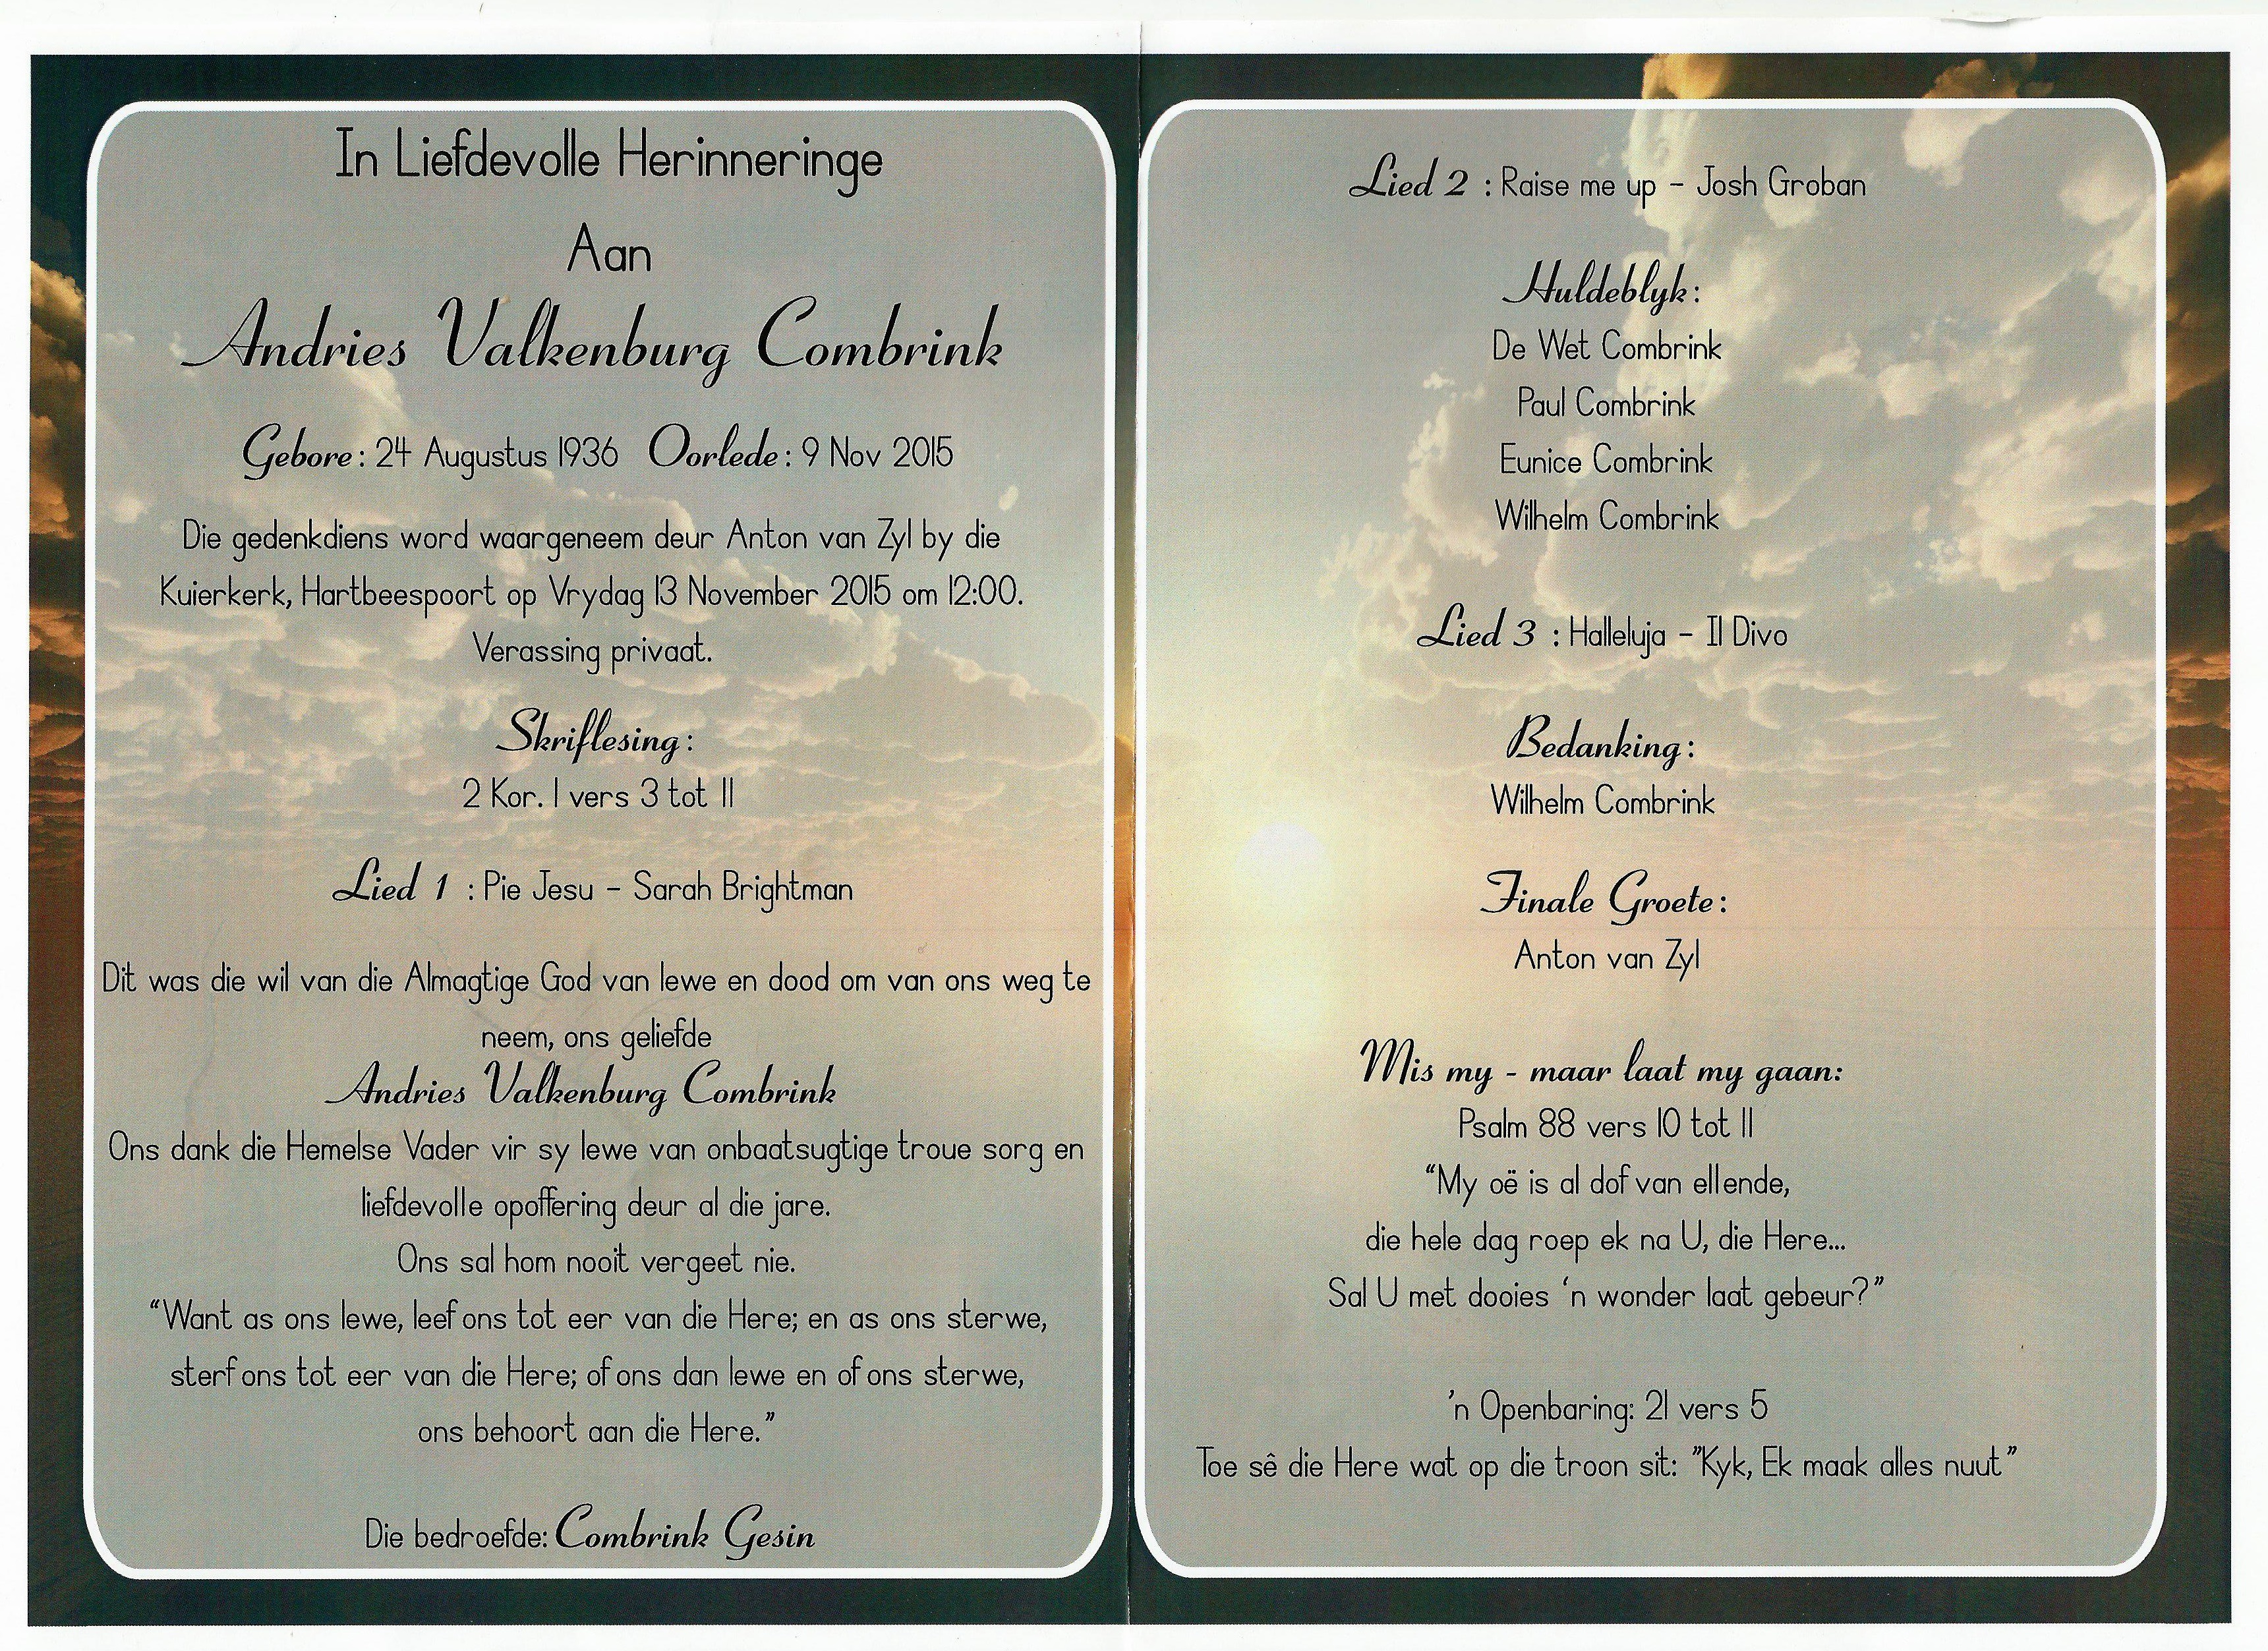 In Liefdevolle Herinneringe
Aan
Andries Valkenburg Combrink
Gebore: 24 Augustus 1936 Oorlede: 9 Nov 2015
Die gedenkdiens word waargeneem deur Anton van Zyl by die
Kuierkerk, Hartbeespoort op Vrydag 13 November 2015 om 12:00.
Verassing privaat.
Skriflesing:
2 Kor. 1 vers 3 tot 11
Lied 1 : Pie Jesu - Sarah Brightman
Dit was die wil van die Almagtige God van lewe en dood om van ons weg te
neem, ons geliefde
Andries Valkenburg Combrink
Ons dank die Hemelse Vader vir sy lewe van onbaatsugtige troue sorg en
liefdevolle opoffering deur al die jare.
Ons sal hom nooit vergeet nie.
“Want as ons lewe, leef ons tot eer van die Here; en as ons sterwe,
sterf ons tot eer van die Here; of ons dan lewe en of ons sterwe,
ons behoort aan die Here.”
Die bedroefde: Combrink Gesin
Lied 2 : Raise me up - Josh Groban
Huldeblyk:
De Wet Combrink
Paul Combrink
Eunice Combrink
Wilhelm Combrink
Lied 3 : Halleluja - Il Divo
Bedanking:
Wilhelm Combrink
Finale Groete:
Anton van Zyl
Mis my - maar laat my gaan:
Psalm 88 vers 10 tot 11
“My oë is al dof van ellende,
die hele dag roep ek na U, die Here...
Sal U met dooies ‘n wonder laat gebeur?”
’n Openbaring: 21 vers 5
Toe sê die Here wat op die troon sit: ”Kyk, Ek maak alles nuut”